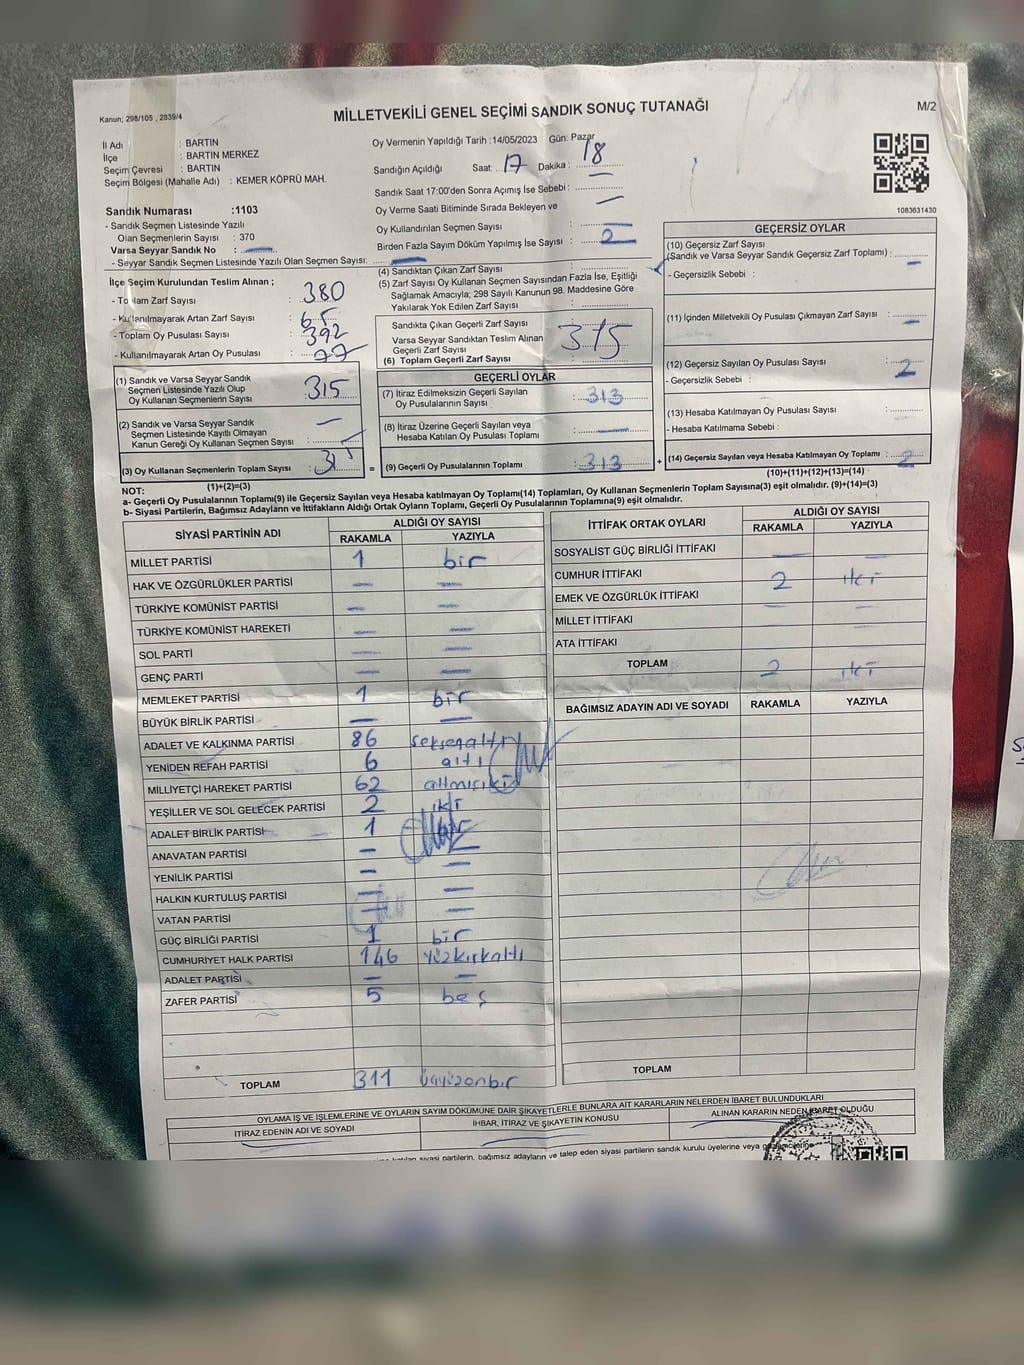 Kanun; 298/105 , 2839/4
MİLLETVEKİLİ GENEL SEÇİMİ SANDIK SONUÇ TUTANAĞI
M/2
İl Adı : BARTIN
İlçe : BARTIN MERKEZ
Seçim Çevresi : BARTIN
Seçim Bölgesi (Mahalle Adı) : KEMER KÖPRÜ MAH.
Sandık Numarası :1103
- Sandık Seçmen Listesinde Yazılı
Olan Seçmenlerin Sayısı : 370
Varsa Seyyar Sandık No :
- Seyyar Sandık Seçmen Listesinde Yazılı Olan Seçmen Sayısı:
Oy Vermenin Yapıldığı Tarih :14/05/2023 Gün: Pazar
Sandığın Açıldığı Saat: 17 Dakika : 18
Sandık Saat 17:00'den Sonra Açımış İse Sebebi :
Oy Verme Saati Bitiminde Sırada Bekleyen ve
Oy Kullandırılan Seçmen Sayısı :
Birden Fazla Sayım Döküm Yapılmış İse Sayısı : 2
1083631430
İlçe Seçim Kurulundan Teslim Alınan ;
- Toplam Zarf Sayısı : 380
- Kullanılmayarak Artan Zarf Sayısı : 65
- Toplam Oy Pusulası Sayısı : 392
- Kullanılmayarak Artan Oy Pusulası : 77
(1) Sandık ve Varsa Seyyar Sandık
Seçmen Listesinde Yazılı Olup
Oy Kullanan Seçmenlerin Sayısı : 315
(2) Sandık ve Varsa Seyyar Sandık
Seçmen Listesinde Kayıtlı Olmayan
Kanun Gereği Oy Kullanan Seçmen Sayısı :
(3) Oy Kullanan Seçmenlerin Toplam Sayısı : 315
(1)+(2)=(3)
(4) Sandıktan Çıkan Zarf Sayısı :
(5) Zarf Sayısı Oy Kullanan Seçmen Sayısından Fazla İse, Eşitliği
Sağlamak Amacıyla; 298 Sayılı Kanunun 98. Maddesine Göre
Yakılarak Yok Edilen Zarf Sayısı :
Sandıkta Çıkan Geçerli Zarf Sayısı
Varsa Seyyar Sandıktan Teslim Alınan
Geçerli Zarf Sayısı
(6) Toplam Geçerli Zarf Sayısı : 315
GEÇERLİ OYLAR
(7) İtiraz Edilmeksizin Geçerli Sayılan
Oy Pusulalarının Sayısı : 313
(8) İtiraz Üzerine Geçerli Sayılan veya
Hesaba Katılan Oy Pusulası Toplamı :
= (9) Geçerli Oy Pusulalarının Toplamı : 313 +
GEÇERSİZ OYLAR
(10) Geçersiz Zarf Sayısı
(Sandık ve Varsa Seyyar Sandık Geçersiz Zarf Toplamı) :
- Geçersizlik Sebebi :
(11) İçinden Milletvekili Oy Pusulası Çıkmayan Zarf Sayısı :
(12) Geçersiz Sayılan Oy Pusulası Sayısı : 2
- Geçersizlik Sebebi :
(13) Hesaba Katılmayan Oy Pusulası Sayısı :
- Hesaba Katılmama Sebebi :
(14) Geçersiz Sayılan veya Hesaba Katılmayan Oy Toplamı : 2
(10)+(11)+(12)+(13)=(14)
NOT:
a- Geçerli Oy Pusulalarının Toplamı(9) ile Geçersiz Sayılan veya Hesaba katılmayan Oy Toplamı(14) Toplamları, Oy Kullanan Seçmenlerin Toplam Sayısına(3) eşit olmalıdır. (9)+(14)=(3)
b- Siyasi Partilerin, Bağımsız Adayların ve İttifakların Aldığı Ortak Oyların Toplamı, Geçerli Oy Pusulalarının Toplamına(9) eşit olmalıdır.
SİYASİ PARTİNİN ADI ALDIĞI OY SAYISI
RAKAMLA YAZIYLA
MİLLET PARTİSİ 1 bir
HAK VE ÖZGÜRLÜKLER PARTİSİ — —
TÜRKİYE KOMÜNİST PARTİSİ — —
TÜRKİYE KOMÜNİST HAREKETİ — —
SOL PARTİ — —
GENÇ PARTİ — —
MEMLEKET PARTİSİ 1 bir
BÜYÜK BİRLİK PARTİSİ — —
ADALET VE KALKINMA PARTİSİ 86 seksenaltı
YENİDEN REFAH PARTİSİ 6 altı
MİLLİYETÇİ HAREKET PARTİSİ 62 altmışiki
YEŞİLLER VE SOL GELECEK PARTİSİ 2 iki
ADALET BİRLİK PARTİSİ 1
ANAVATAN PARTİSİ — —
YENİLİK PARTİSİ — —
HALKIN KURTULUŞ PARTİSİ — —
VATAN PARTİSİ — —
GÜÇ BİRLİĞİ PARTİSİ 1 bir
CUMHURİYET HALK PARTİSİ 146 yüzkırkaltı
ADALET PARTİSİ — —
ZAFER PARTİSİ 5 beş
TOPLAM 311 üçyüzonbir
İTTİFAK ORTAK OYLARI ALDIĞI OY SAYISI
RAKAMLA YAZIYLA
SOSYALİST GÜÇ BİRLİĞİ İTTİFAKI — —
CUMHUR İTTİFAKI 2 iki
EMEK VE ÖZGÜRLÜK İTTİFAKI — —
MİLLET İTTİFAKI
ATA İTTİFAKI
TOPLAM 2 iki
BAĞIMSIZ ADAYIN ADI VE SOYADI RAKAMLA YAZIYLA
TOPLAM
OYLAMA İŞ VE İŞLEMLERİNE VE OYLARIN SAYIM DÖKÜMÜNE DAİR ŞİKAYETLERLE BUNLARA AİT KARARLARIN NELERDEN İBARET BULUNDUKLARI
İTİRAZ EDENİN ADI VE SOYADI İHBAR, İTİRAZ VE ŞİKAYETİN KONUSU ALINAN KARARIN NEDEN İBARET OLDUĞU
siyasi partilerin, bağımsız adayların ve talep eden siyasi partilerin sandık kurulu üyelerine veya